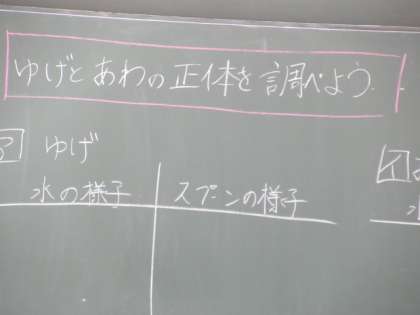 ゆげとあわの正体を調べよう.
ア ゆげ
水の様子 スプーンの様子
イ
水